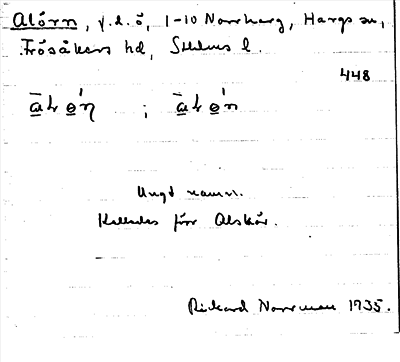 Alörn, f.d. ö, 1-10 Norrharg, Hargs sn,
Frösåkers hd, Sthlms l.
448
Ungt namn.
Kallades förr Alskär.
Rickard Norrman 1935.